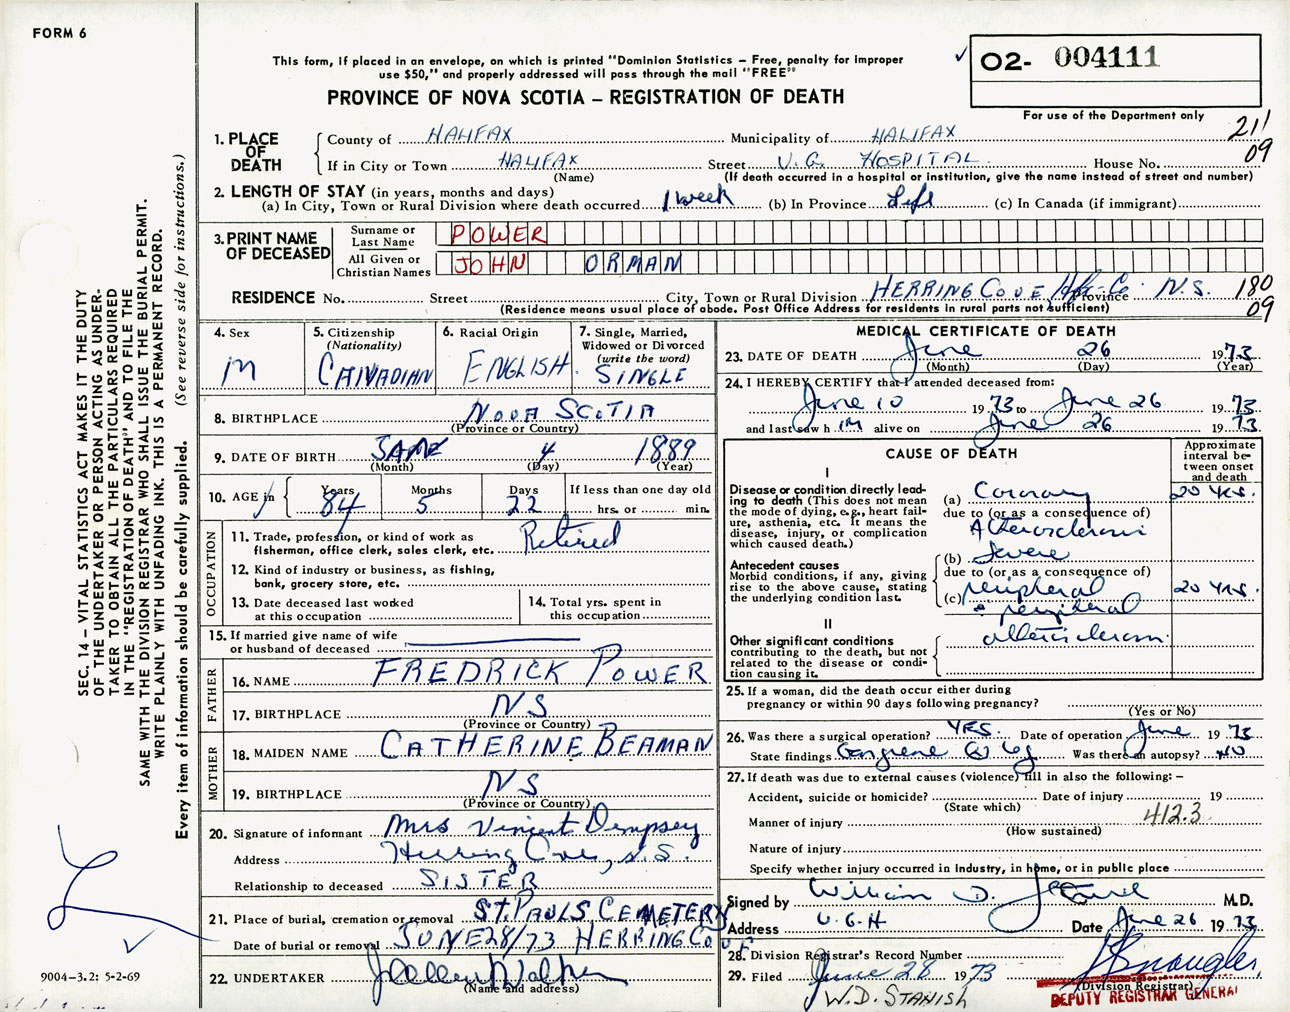 FORM 6
This form, if placed in an envelope, on which is printed "Dominion Statistics – Free, penalty for improper
use $50," and properly addressed will pass through the mail "FREE"
PROVINCE OF NOVA SCOTIA – REGISTRATION OF DEATH
✓ O2- 004111
For use of the Department only
211
09
1. PLACE OF DEATH
County of HALIFAX Municipality of HALIFAX
If in City or Town HALIFAX Street V.G. HOSPITAL House No.
(Name) (If death occurred in a hospital or institution, give the name instead of street and number)
2. LENGTH OF STAY (in years, months and days)
(a) In City, Town or Rural Division where death occurred 1 week (b) In Province Life (c) In Canada (if immigrant)
3. PRINT NAME OF DECEASED
Surname or Last Name POWER
All Given or Christian Names JOHN ORMAN
RESIDENCE No. Street City, Town or Rural Division HERRING COVE, Hfx-Co Province N.S. 180
09
(Residence means usual place of abode. Post Office Address for residents in rural parts not sufficient)
4. Sex
M
5. Citizenship
(Nationality)
CANADIAN
6. Racial Origin
ENGLISH
7. Single, Married,
Widowed or Divorced
(write the word)
SINGLE
8. BIRTHPLACE NOVA SCOTIA
(Province or Country)
9. DATE OF BIRTH JAN 4 1889
(Month) (Day) (Year)
10. AGE in Years 84 Months 5 Days 22 If less than one day old
hrs. or min.
OCCUPATION
11. Trade, profession, or kind of work as
fisherman, office clerk, sales clerk, etc. Retired
12. Kind of industry or business, as fishing,
bank, grocery store, etc.
13. Date deceased last worked
at this occupation
14. Total yrs. spent in
this occupation
15. If married give name of wife
or husband of deceased
FATHER
16. NAME FREDRICK POWER
17. BIRTHPLACE NS
(Province or Country)
MOTHER
18. MAIDEN NAME CATHERINE BEAMAN
19. BIRTHPLACE NS
(Province or Country)
20. Signature of informant Mrs Vincent Dempsey
Address Herring Cove, N.S.
Relationship to deceased SISTER
21. Place of burial, cremation or removal ST. PAULS CEMETERY
Date of burial or removal JUNE 28/73 HERRING COVE
22. UNDERTAKER
(Name and address)
MEDICAL CERTIFICATE OF DEATH
23. DATE OF DEATH June 26 1973
(Month) (Day) (Year)
24. I HEREBY CERTIFY that I attended deceased from:
June 10 1973 to June 26 1973
and last saw him alive on June 26 1973
CAUSE OF DEATH
Approximate
interval be-
tween onset
and death
I
Disease or condition directly lead-
ing to death (This does not mean
the mode of dying, e.g., heart fail-
ure, asthenia, etc. It means the
disease, injury, or complication
which caused death.)
(a) Coronary 20 yrs.
due to (or as a consequence of)
Atherosclerosis
(b) Severe
due to (or as a consequence of)
Antecedent causes
Morbid conditions, if any, giving
rise to the above cause, stating
the underlying condition last.
(c) peripheral 20 yrs.
peripheral
II
Other significant conditions
contributing to the death, but not
related to the disease or condi-
tion causing it.
25. If a woman, did the death occur either during
pregnancy or within 90 days following pregnancy?
(Yes or No)
26. Was there a surgical operation? YES. Date of operation June 1973
State findings Gangrene leg Was there an autopsy? NO
27. If death was due to external causes (violence) fill in also the following: –
Accident, suicide or homicide? Date of injury 19
(State which)
Manner of injury 412.3
(How sustained)
Nature of injury
Specify whether injury occurred in industry, in home, or in public place
Signed by William D. M.D.
Address V.G.H Date June 26 1973
28. Division Registrar's Record Number
29. Filed June 28 1973
(Division Registrar)
W.D. STANISH
DEPUTY REGISTRAR GENERAL
SEC. 14 – VITAL STATISTICS ACT MAKES IT THE DUTY
OF THE UNDERTAKER OR PERSON ACTING AS UNDER-
TAKER TO OBTAIN ALL THE PARTICULARS REQUIRED
IN THE "REGISTRATION OF DEATH" AND TO FILE THE
SAME WITH THE DIVISION REGISTRAR WHO SHALL ISSUE THE BURIAL PERMIT.
WRITE PLAINLY WITH UNFADING INK. THIS IS A PERMANENT RECORD.
Every item of information should be carefully supplied. (See reverse side for instructions.)
9004-3.2: 5-2-69